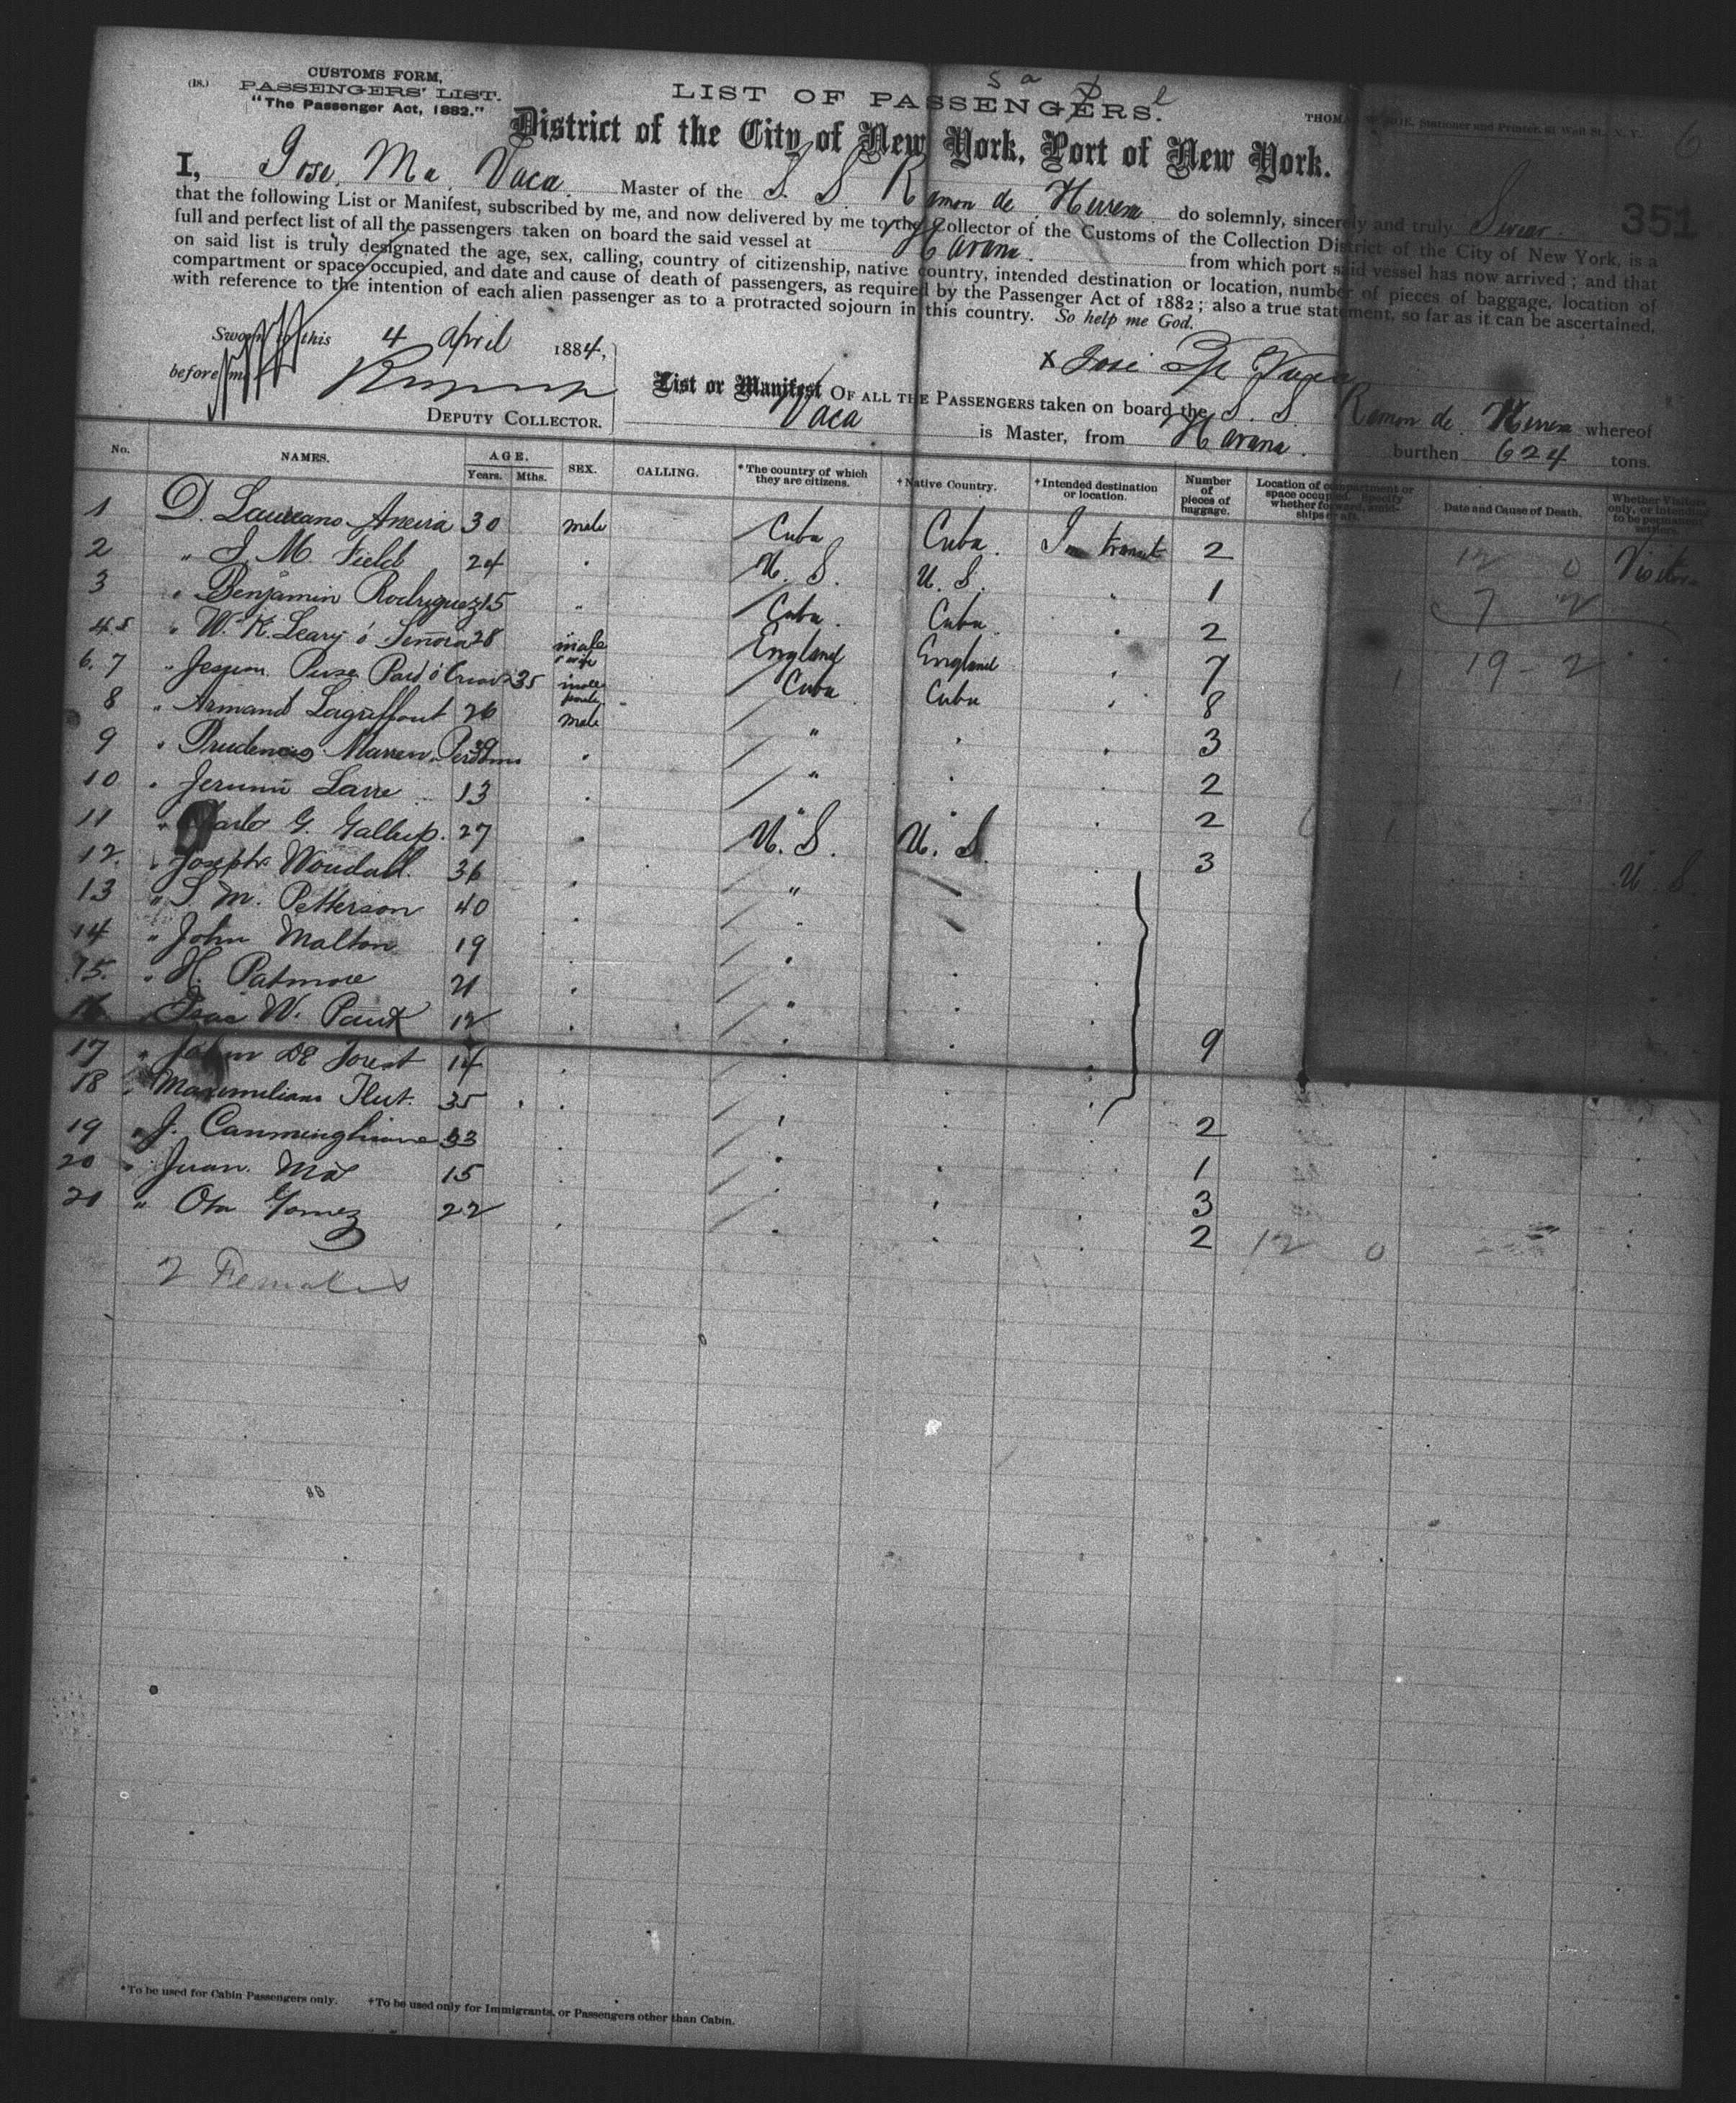 (18.)
CUSTOMS FORM,
PASSENGERS' LIST.
"The Passenger Act, 1882."
LIST OF PASSENGERS.
6
District of the City of New York, Port of New York.
351
I, Jose Ma Vaca Master of the S. S. Ramon de Herrera do solemnly, sincerely and truly Swear.
that the following List or Manifest, subscribed by me, and now delivered by me to the Collector of the Customs of the Collection District of the City of New York, is a
full and perfect list of all the passengers taken on board the said vessel at Havana. from which port said vessel has now arrived; and that
on said list is truly designated the age, sex, calling, country of citizenship, native country, intended destination or location, number of pieces of baggage, location of
compartment or space occupied, and date and cause of death of passengers, as required by the Passenger Act of 1882; also a true statement, so far as it can be ascertained,
with reference to the intention of each alien passenger as to a protracted sojourn in this country. So help me God.
Sworn to this 4 April 1884,
before me
x Jose Ma Vaca
DEPUTY COLLECTOR.
List or Manifest OF ALL THE PASSENGERS taken on board the S. S. Ramon de Herrera whereof
Vaca is Master, from Havana. burthen 624 tons.
No. NAMES. AGE. Years. Mths. SEX. CALLING. *The country of which they are citizens. †Native Country. †Intended destination or location. Number of pieces of baggage. Location of compartment or space occupied. Specify whether forward, amidships or aft. Date and Cause of Death. Whether Visitors only, or intending to be permanent settlers.
1 D. Laureano Aneira 30 male Cuba Cuba. In transit 2
2 " S. M. Field 24 U. S. U. S. 1
3 " Benjamin Rodriguez 15 " Cuba. Cuba. 2
4.5 " W. K. Leary é Señora 28 male & wife England England 7
6. 7 " 35 male Cuba Cuba 8
8 " Armand 26 male " 3
9 " 2
10 " 13 2
11 " G. Gallup. 27 U. S. U. S. 3
12. " Joseph Woudall. 36 " U. S.
13 " S. M. Petterson 40
14 " John Malton 19
15. " H. Patmore 21
16 Isac W. 12 9
17 " De Forest 14
18 " Maximiliano 35 2
19 " J. 33 1
20 " Juan 15 3
21 " Gomez 22 2 12 0
2 Females
*To be used for Cabin Passengers only. †To be used only for Immigrants, or Passengers other than Cabin.